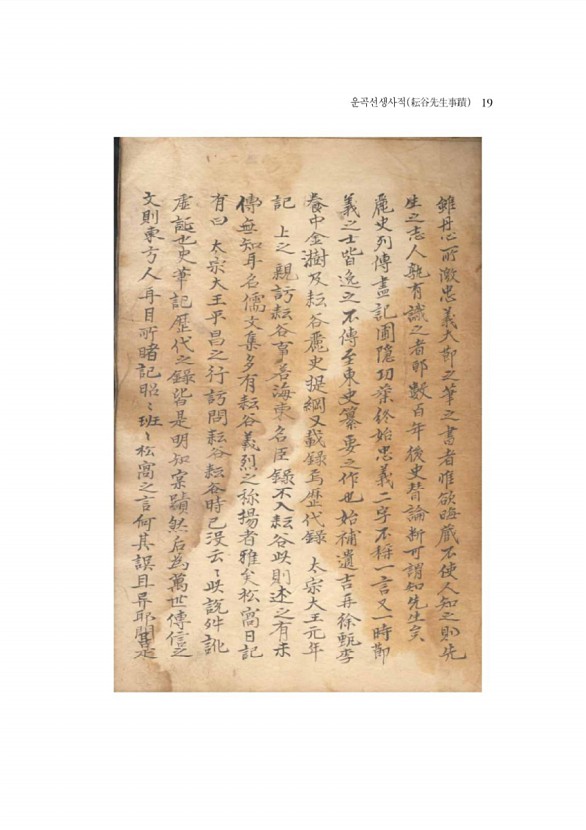 운곡선생사적(耘谷先生事蹟) 19
雖丹心所激忠義大節之筆之書者惟欲晦藏不使人知之則先
生之志人孰有識之者耶數百年後史替論斷可謂知先生矣
麗史列傳盡記圃隱功業終始忠義二字不稱一言又一時節
義之士皆逸之不傳至東史纂要之作也始補遺吉再徐甄李
養中金澍及耘谷麗史提綱又載錄焉歷代錄 太宗大王元年
記 上之親訪耘谷事若海東名臣錄不入耘谷此則述之有未
傳無知耳名儒文集多有耘谷義烈之稱揚者雅矣松窩日記
有曰 太宗大王平昌之行訪問耘谷耘谷時已沒云〻此說舛訛
虛誕也史筆記歷代之錄皆是明知實蹟然后為萬世傳信之
文則東方人耳目所睹記昭〻班〻松窩之言何其誤且異耶